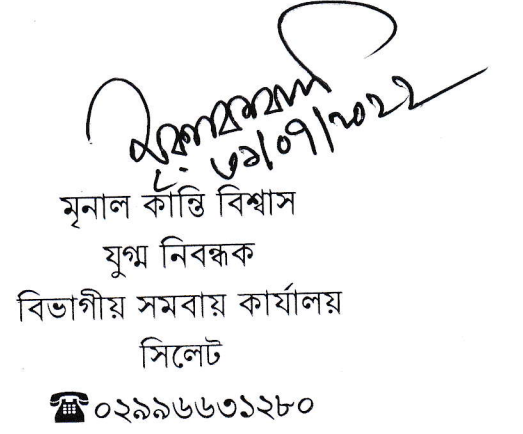 ৩১/০৭/২০২২
মৃনাল কান্তি বিশ্বাস
যুগ্ম নিবন্ধক
বিভাগীয় সমবায় কার্যালয়
সিলেট
☎০২৯৯৬৬৩১২৮০